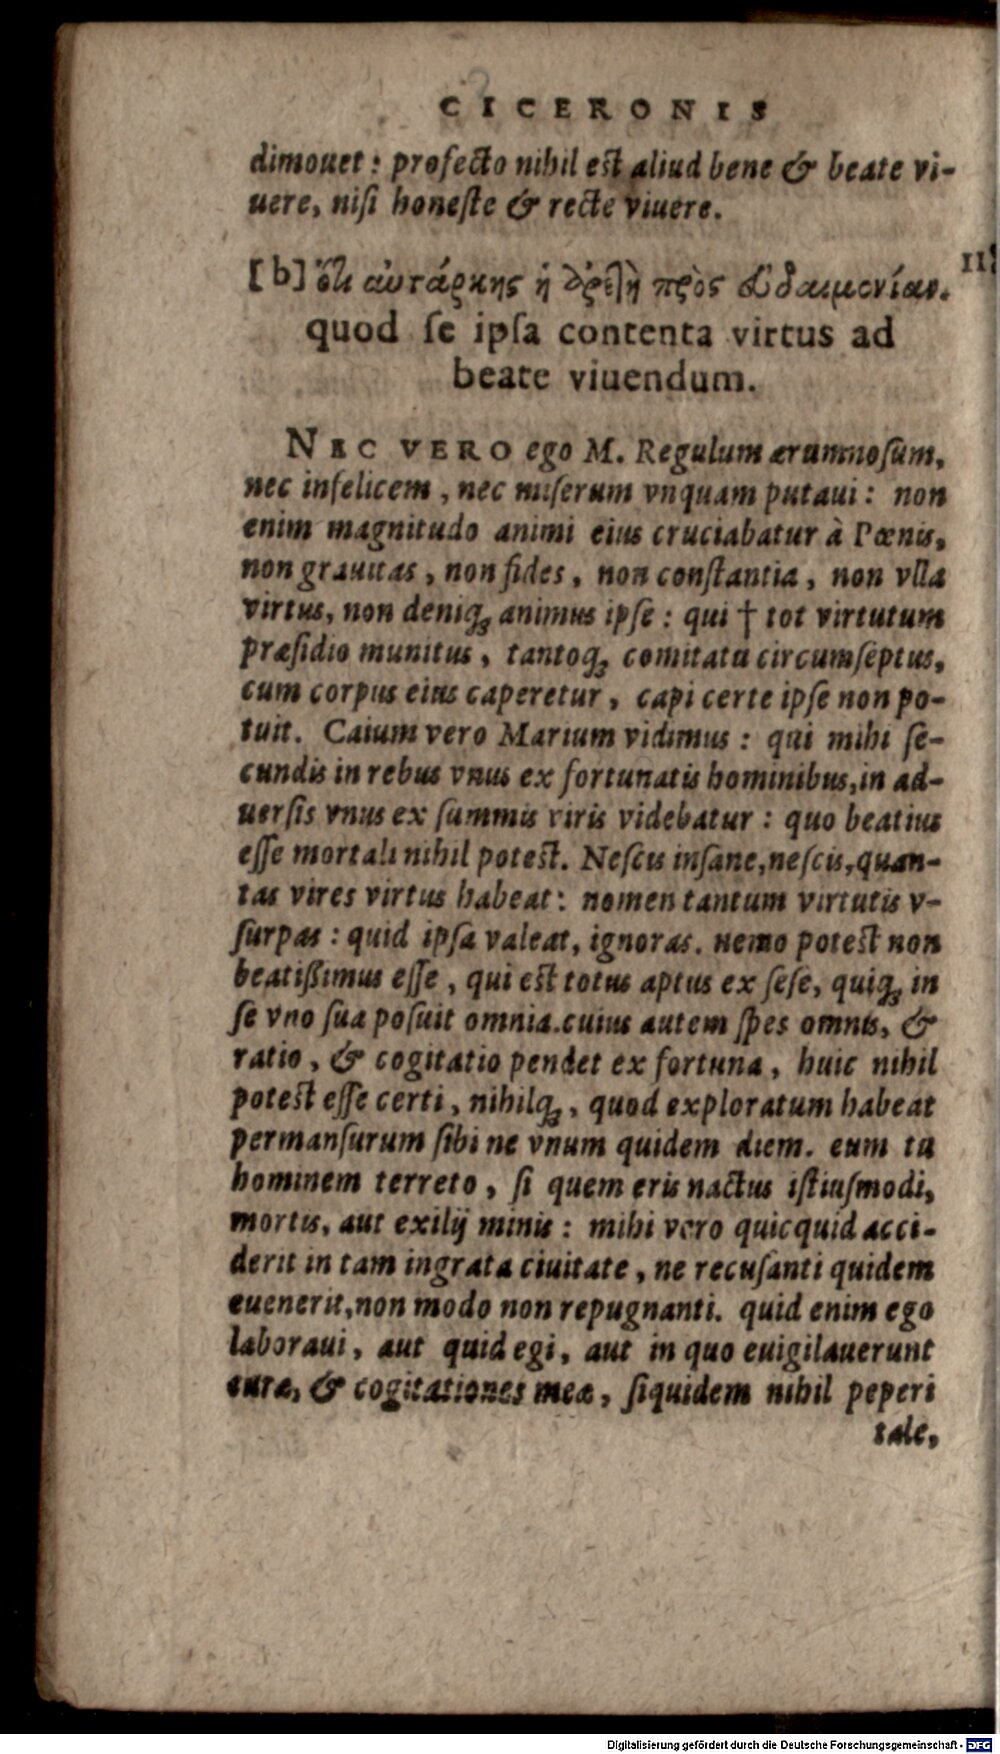 CICERONIS
dimouet: profecto nihil est aliud bene & beate vi-
uere, nisi honeste & recte viuere.
II
[b] ὅτι αὐτάρκης ἡ ἀρετὴ πρὸς εὐδαιμονίαν.
quod se ipsa contenta virtus ad
beate viuendum.
NEC VERO ego M. Regulum ærumnosum,
nec infelicem, nec miserum vnquam putaui: non
enim magnitudo animi eius cruciabatur à Pœnis,
non grauitas, non fides, non constantia, non vlla
virtus, non deniq; animus ipse: qui † tot virtutum
præsidio munitus, tantoq; comitatu circumseptus,
cum corpus eius caperetur, capi certe ipse non po-
tuit. Caium vero Marium vidimus: qui mihi se-
cundis in rebus vnus ex fortunatis hominibus, in ad-
uersis vnus ex summis viris videbatur: quo beatius
esse mortali nihil potest. Nescis insane, nescis, quan-
tas vires virtus habeat: nomen tantum virtutis v-
surpas: quid ipsa valeat, ignoras. nemo potest non
beatissimus esse, qui est totus aptus ex sese, quiq; in
se vno sua posuit omnia. cuius autem spes omnis, &
ratio, & cogitatio pendet ex fortuna, huic nihil
potest esse certi, nihilq;, quod exploratum habeat
permansurum sibi ne vnum quidem diem. eum tu
hominem terreto, si quem eris nactus istiusmodi,
mortis, aut exilij minis: mihi vero quicquid acci-
derit in tam ingrata ciuitate, ne recusanti quidem
euenerit, non modo non repugnanti. quid enim ego
laboraui, aut quid egi, aut in quo euigilauerunt
curæ, & cogitationes meæ, siquidem nihil peperi
tale,
Digitalisierung gefördert durch die Deutsche Forschungsgemeinschaft - DFG